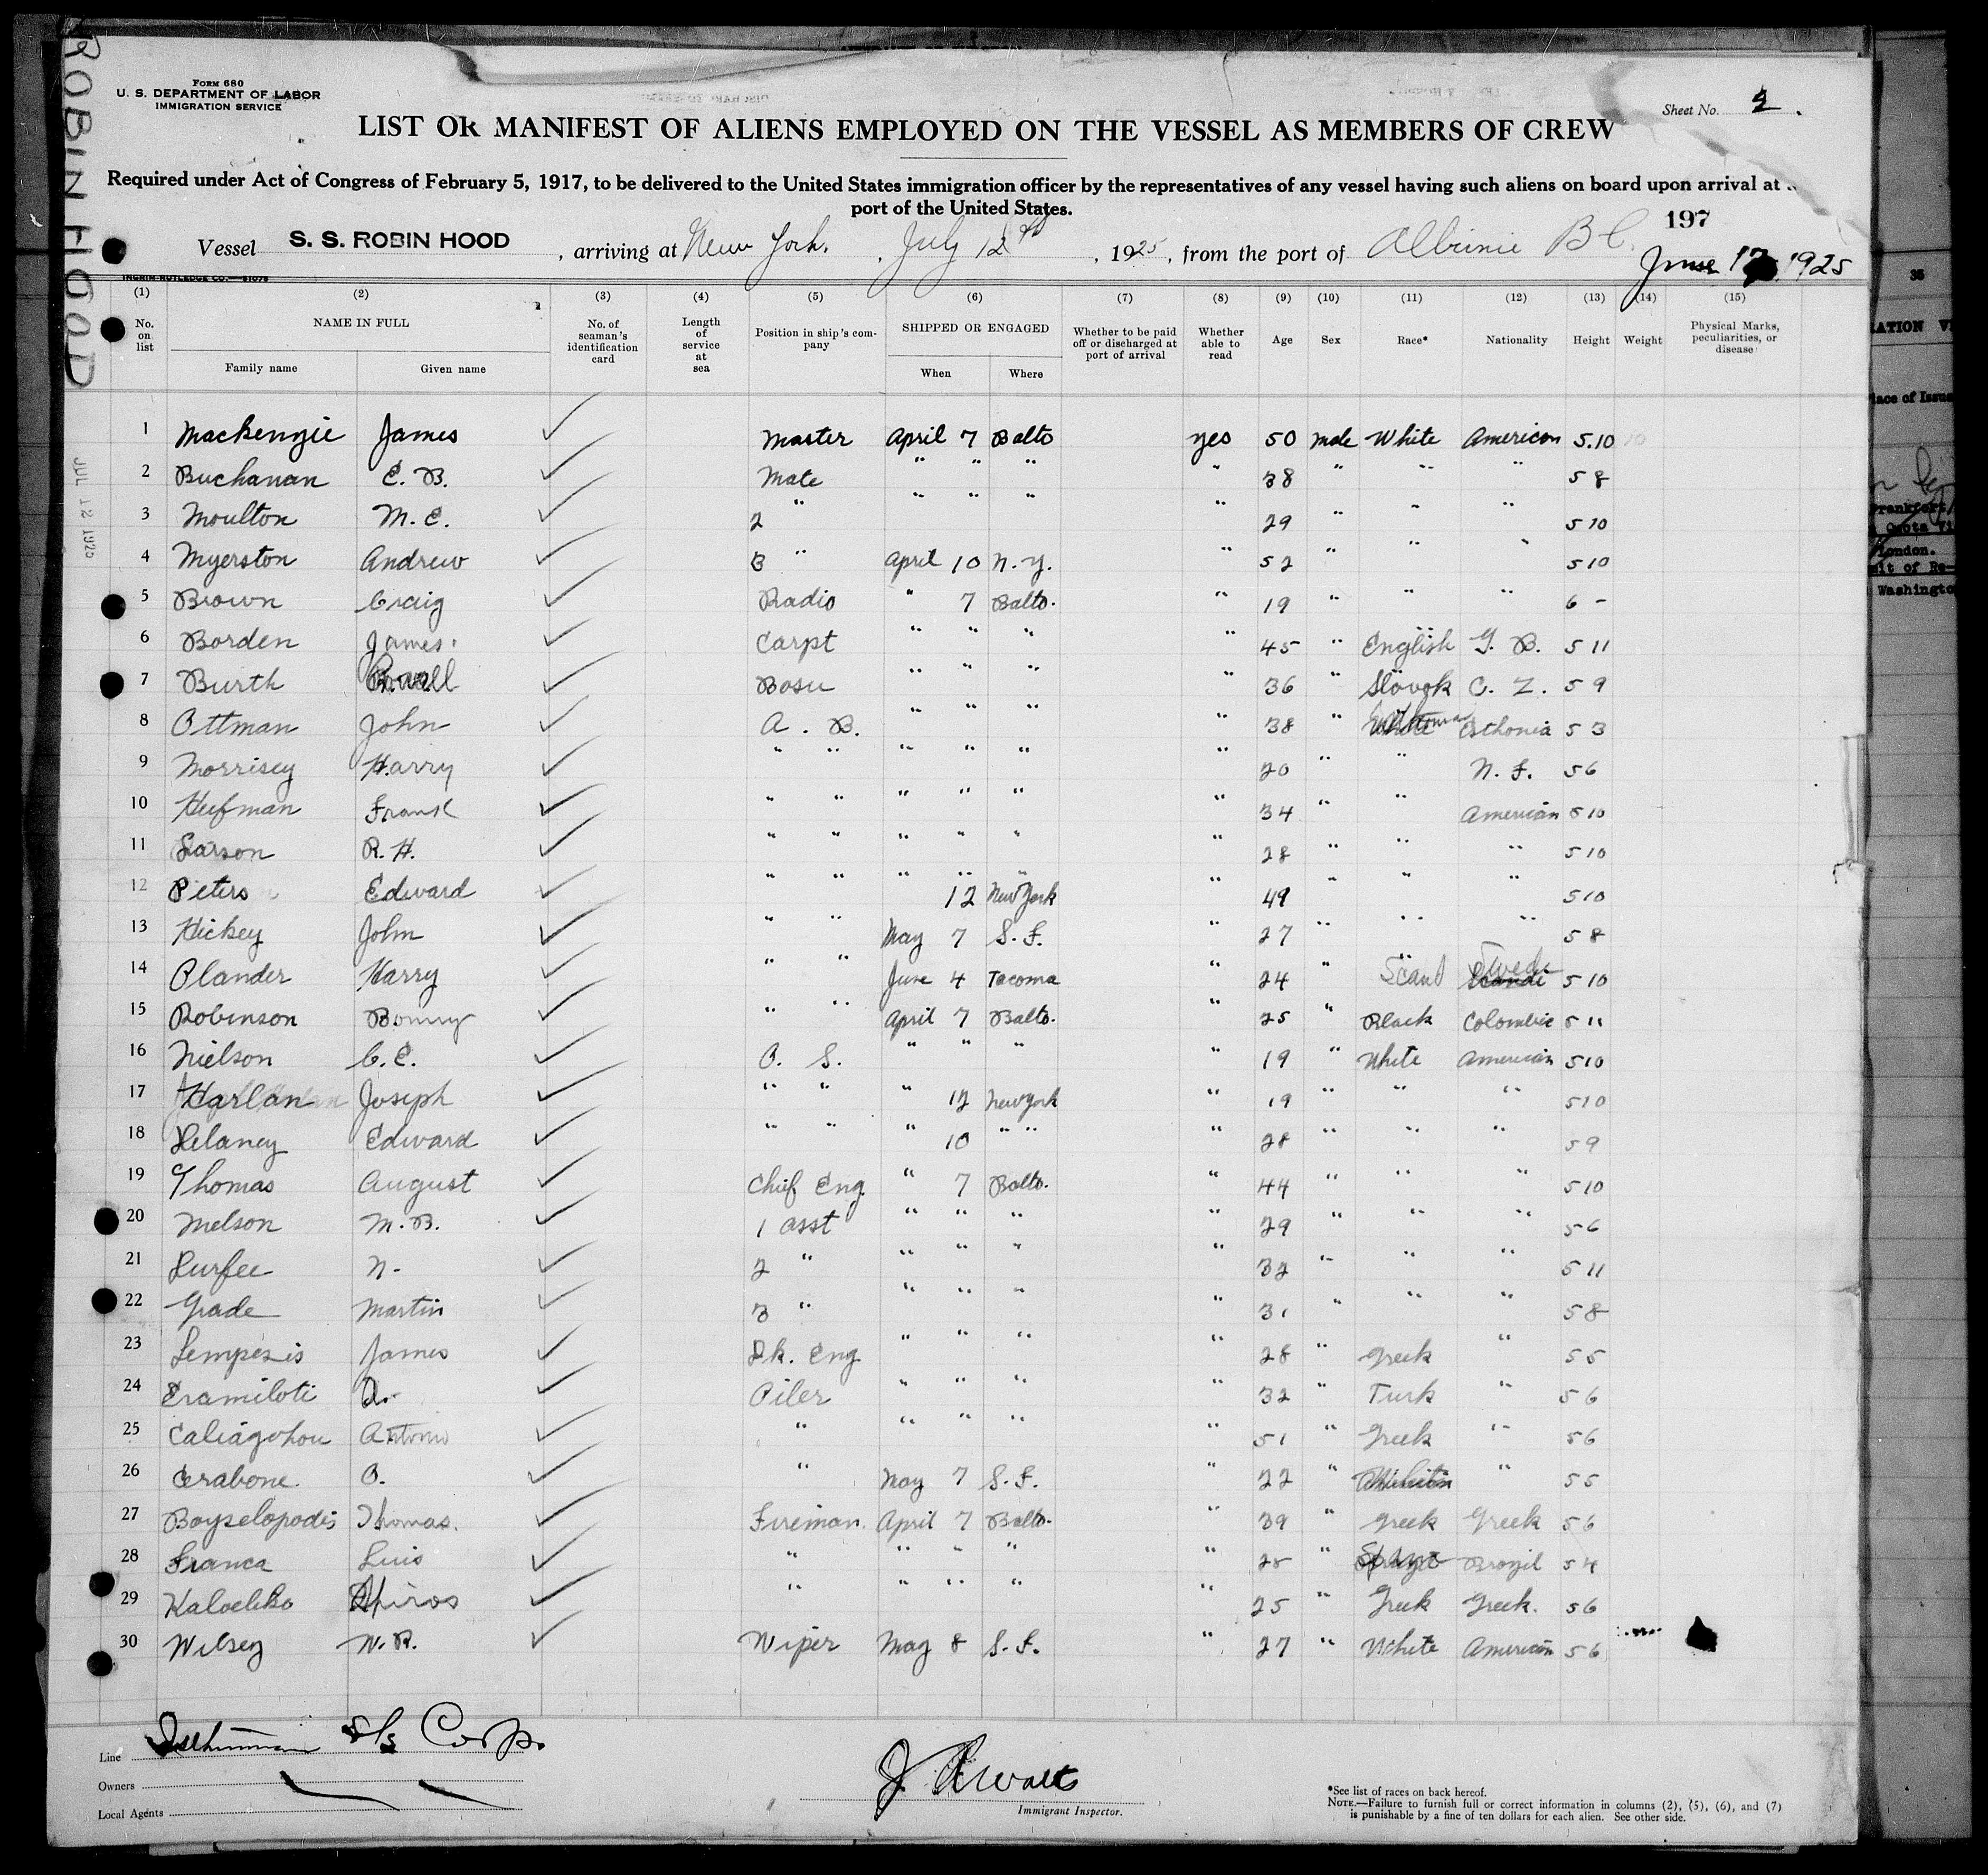 ROBIN HOOD
FORM 680
U. S. DEPARTMENT OF LABOR
IMMIGRATION SERVICE
Sheet No.
LIST OR MANIFEST OF ALIENS EMPLOYED ON THE VESSEL AS MEMBERS OF CREW
Required under Act of Congress of February 5, 1917, to be delivered to the United States immigration officer by the representatives of any vessel having such aliens on board upon arrival at
port of the United States.
197
Vessel S. S. ROBIN HOOD, arriving at New York, July 12th, 1925, from the port of B C.
June 17 1925
INGRIM-RUTLEDGE CO.—51075
(1) (2) (3) (4) (5) (6) (7) (8) (9) (10) (11) (12) (13) (14) (15)
No. on list NAME IN FULL Family name Given name No. of seaman's identification card Length of service at sea Position in ship's company SHIPPED OR ENGAGED When Where Whether to be paid off or discharged at port of arrival Whether able to read Age Sex Race* Nationality Height Weight Physical Marks, peculiarities, or disease
1 Mackenzie James Master April 7 Balto yes 50 male White American 5.10
2 Buchanan E. B. Mate " " " " 38 " " " 5 8
3 Moulton M. E. 2 " " " " " 29 " " " 5 10
4 Myerston Andrew 3 " April 10 N.Y. " 52 " " " 5 10
5 Brown Craig Radio " 7 Balto. " 19 " " " 6 -
6 Borden James. Carpt " " " " 45 " English G. B. 5 11
7 Burth Bosu " " " " 36 " Slovak C. Z. 5 9
8 Ottman John A. B. " " " " 38 " Esthonia 5 3
9 Morrisey Harry " " " " " " 20 " " N. F. 5 6
10 Hufman Frank " " " " " " 34 " " American 5 10
11 Larson R. H. " " " " " " 28 " " " 5 10
12 Peters Edward " " " 12 New York " 49 " " " 5 10
13 Hickey John " " May 7 S. F. " 27 " " " 5 8
14 Olander Harry " " June 4 Tacoma " 24 " Scand Swede 5 10
15 Robinson Bonny " " April 7 Balto. " 25 " Black Colombia 5 11
16 Nielson C. E. O. S. " " " " 19 " White American 5 10
17 Harlan Joseph " " " 12 New York " 19 " " " 5 10
18 Delaney Edward " " " 10 " " " 28 " " " 5 9
19 Thomas August Chief Eng. " 7 Balto. " 44 " " " 5 10
20 Melson M. B. 1 asst " " " " 29 " " " 5 6
21 Durfee N- 2 " " " " " 32 " " " 5 11
22 Grade Martin 3 " " " " " 31 " " " 5 8
23 Lempesis James Dk. Eng " " " " 28 " Greek " 5 5
24 Eramiloti Oiler " " " " 32 " Turk " 5 6
25 Antonio " " " " " 51 " Greek " 5 6
26 O. " May 7 S. F. " 22 " " 5 5
27 Boyselopodis Thomas. Fireman April 7 Balto. " 39 " Greek Greek 5 6
28 Franca Luis " " " " " 25 " Brazil 5 4
29 Spiros " " " " " 25 " Greek Greek. 5 6
30 Wilsey W. R. Wiper May 8 S. F. " 27 " White American 5 6
JUL 12 1925
Line S/S Corp.
Owners
Local Agents
Immigrant Inspector.
*See list of races on back hereof.
NOTE.—Failure to furnish full or correct information in columns (2), (5), (6), and (7)
is punishable by a fine of ten dollars for each alien. See other side.
35
London.
Washington